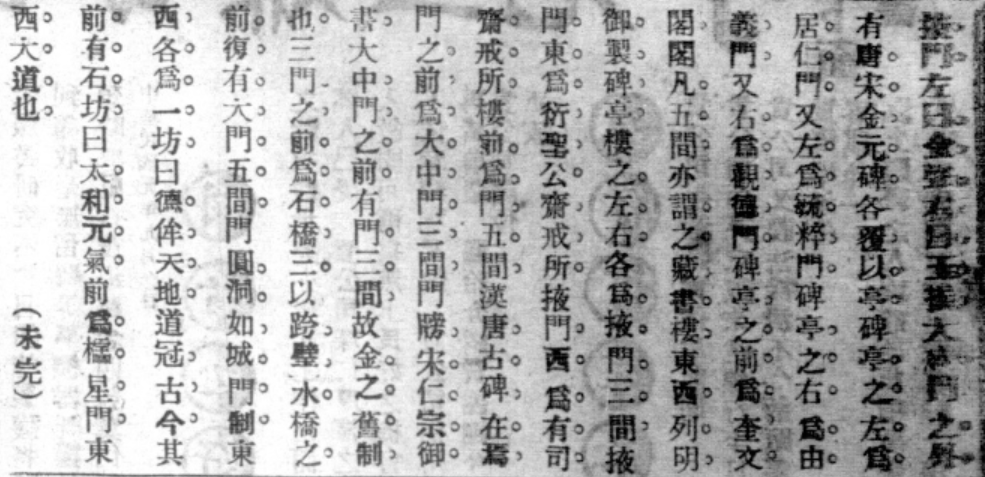 掖門左曰金聲右曰玉振大成門之外
有唐宋金元碑各覆以亭碑亭之左爲
居仁門又左爲毓粹門碑亭之右爲由
義門又右爲觀德門碑亭之前爲奎文
閣閣凡五間亦謂之藏書樓東西列明
御製碑亭樓之左右各爲掖門三間掖
門東爲衍聖公齋戒所掖門西爲有司
齋戒所樓前爲門五間漢唐古碑在焉
門之前爲大中門三間門牓宋仁宗御
書大中門之前有門三間故金之舊制
也三門之前爲石橋三以跨璧水橋之
前復有大門五間門圓洞如城門制東
西各爲一坊曰德侔天地道冠古今其
前有石坊曰太和元氣前爲櫺星門東
西大道也　（未完）